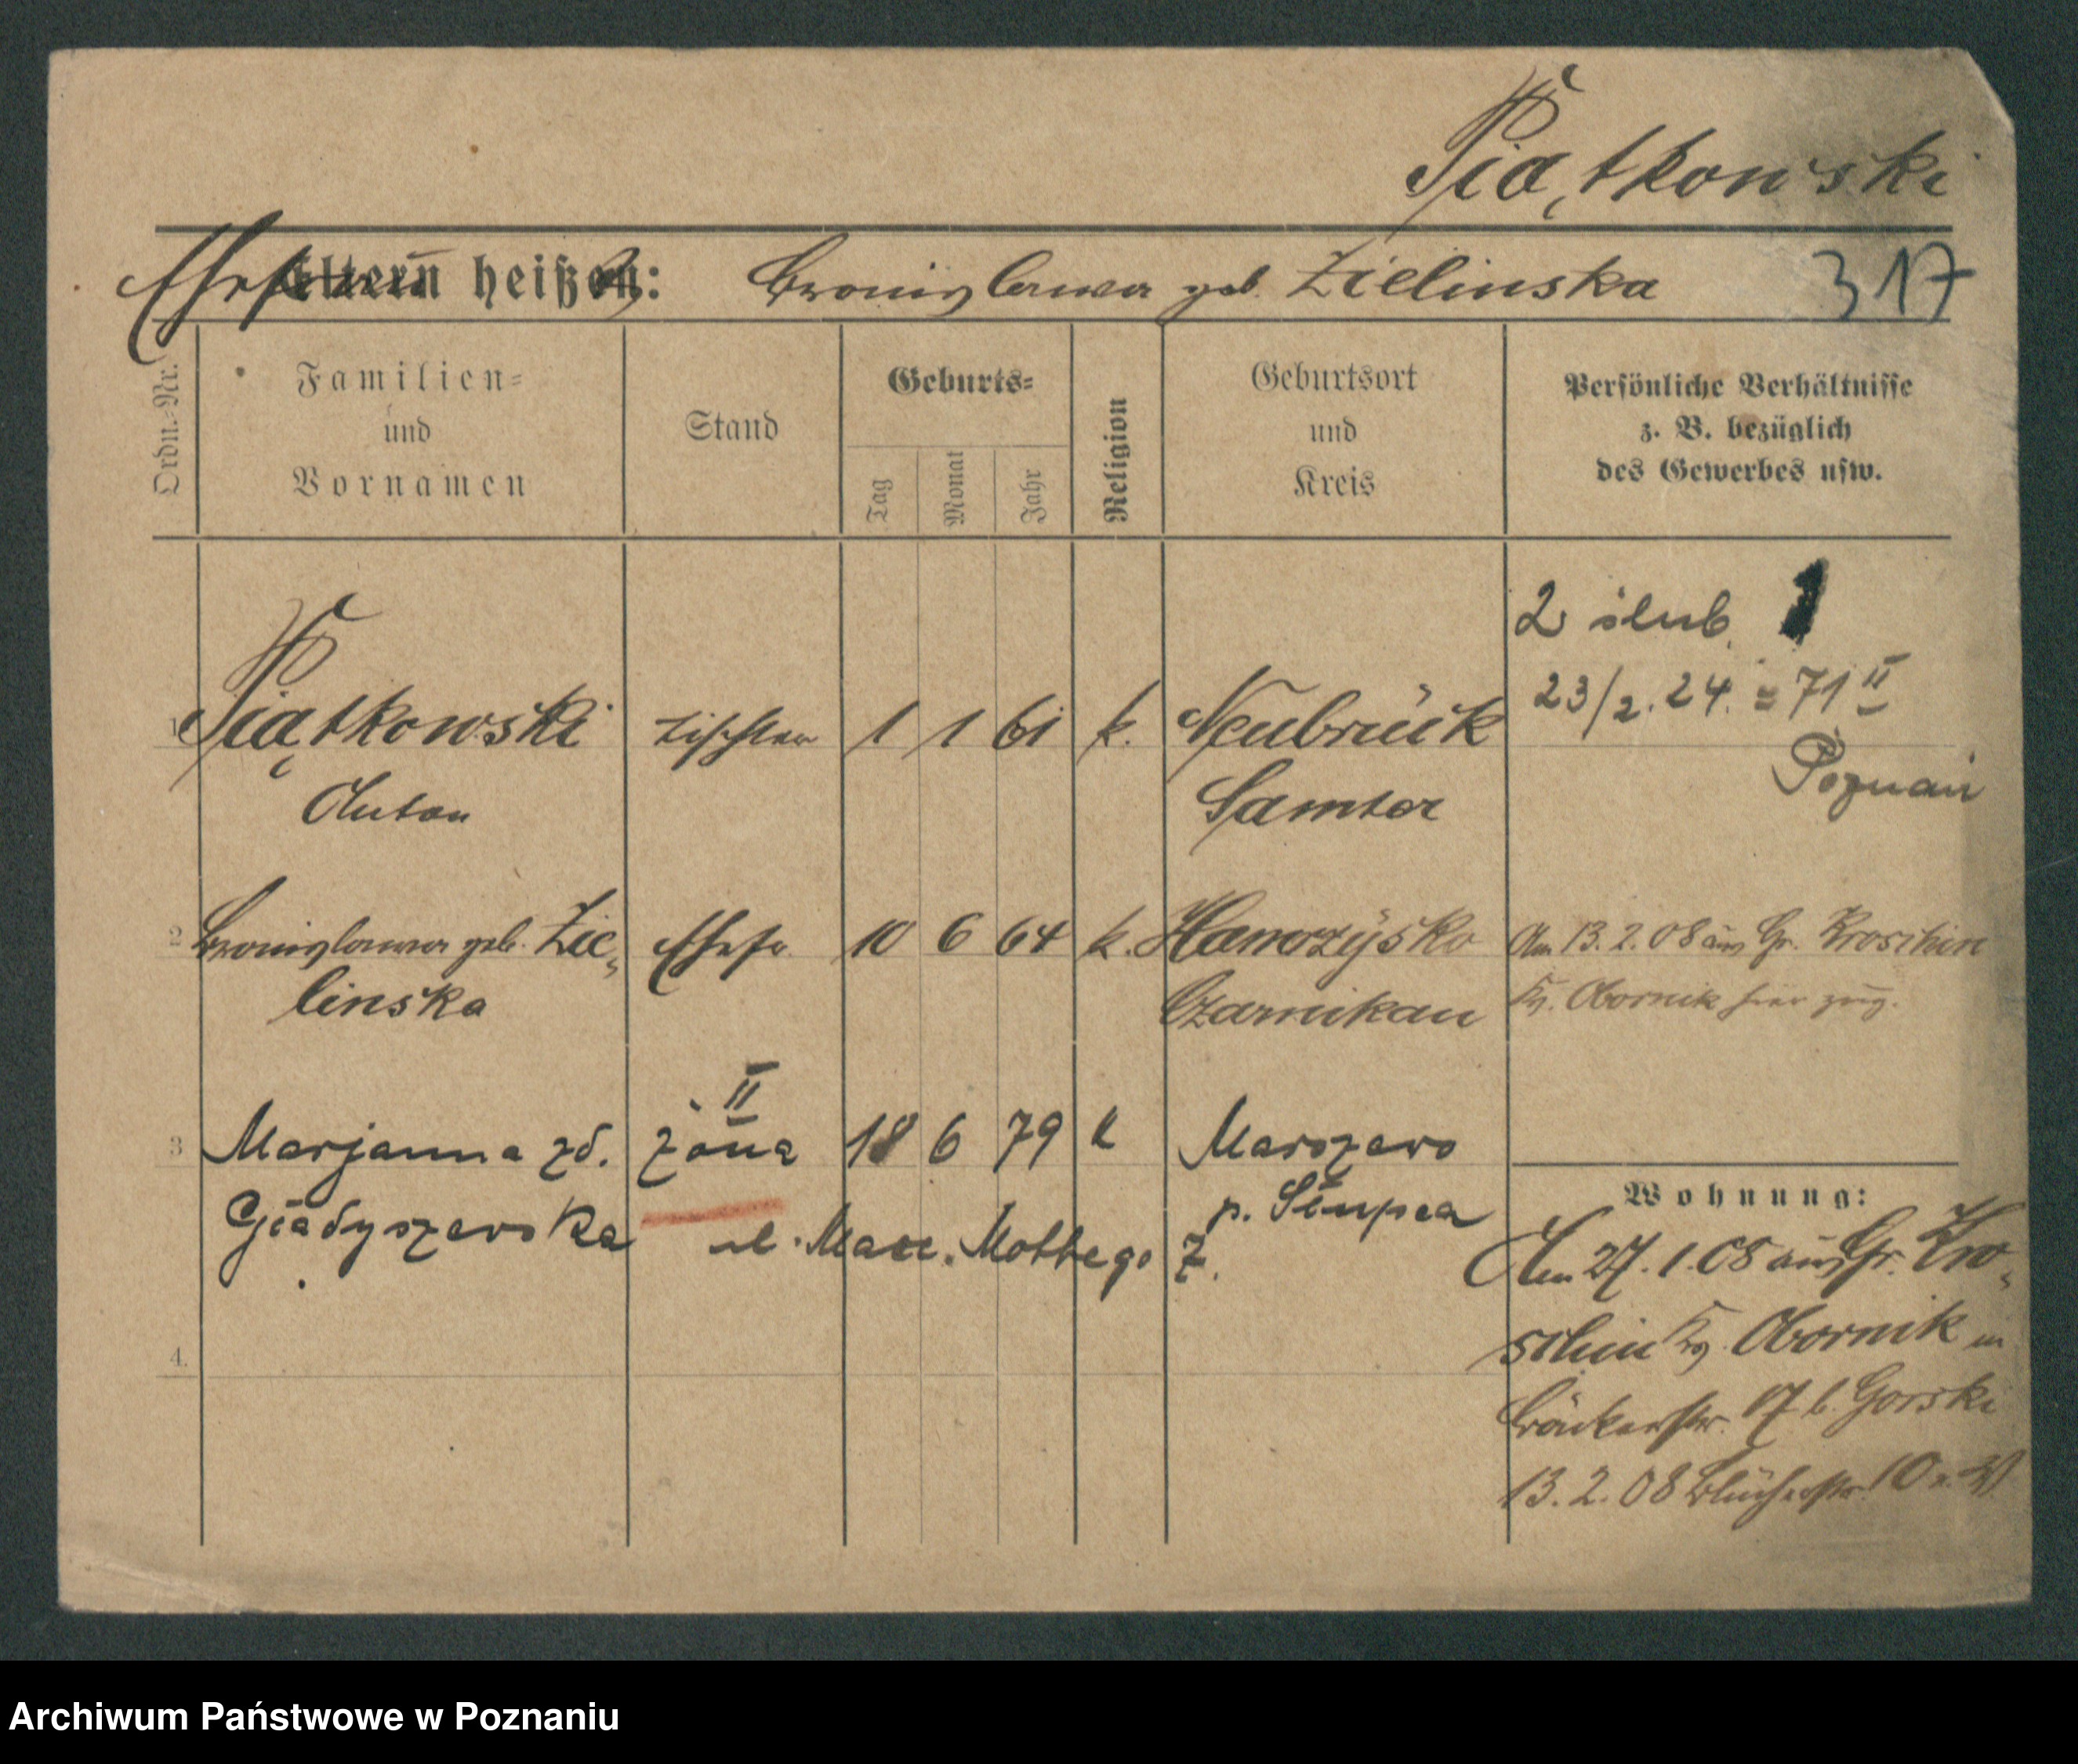 Piątkowski
Ehefrau Eltern heißen: Bronislawa geb. Zielinska 317
Ordn.=Nr.
Familien=
und
Vornamen
Stand
Geburts=
Tag
Monat
Jahr
Religion
Geburtsort
und
Kreis
Persönliche Verhältnisse
z. B. bezüglich
des Gewerbes usw.
2 ślub. 1
23/2. 24. = 71 II
Poznań
1 Piątkowski Tischler 1 1 61 k. Neubrück
Anton Samter
2 Bronislawa geb. Zie= Ehefr. 10 6 64 k. Hamrzysko Am 13. 2. 08 aus Gr. Kroschin
linska Czarnikau Kr. Obornik hier zug.
II
3 Marjanna zd. żona 18 6 79 k Marszewo
Gładyszewska p. Słupca
ul. Marc. Mottego 7.
4.
Wohnung:
Am 27. 1. 08 aus Gr. Kro=
schin Kr. Obornik in
Bäckerstr. 17 b. Gorski
13. 2. 08 Blücherstr. 10
Archiwum Państwowe w Poznaniu